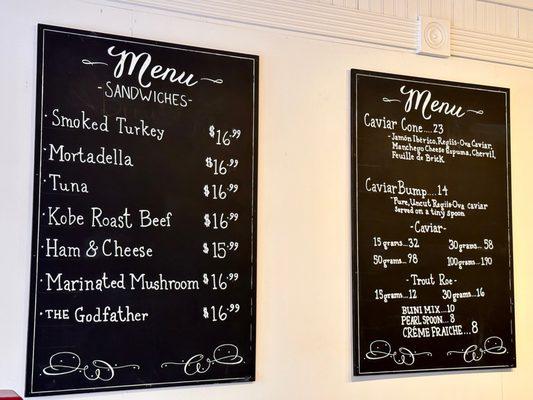 Menu
-SANDWICHES-
· Smoked Turkey $16.99
· Mortadella $16.99
· Tuna $16.99
· Kobe Roast Beef $16.99
· Ham & Cheese $15.99
· Marinated Mushroom $16.99
· THE Godfather $16.99
Menu
Caviar Cone....23
· Jamón Ibérico, Regiis-Ova Caviar,
Manchego Cheese Espuma, Chervil,
Feuille de Brick
Caviar Bump....14
· Pure, Uncut Regiis-Ova caviar
served on a tiny spoon
-Caviar-
15 grams...32 30 grams...58
50 grams...98 100 grams...190
-Trout Roe-
15 grams...12 30 grams...16
BLINI MIX...10
PEARL SPOON...8
CRÈME FRAICHE...8